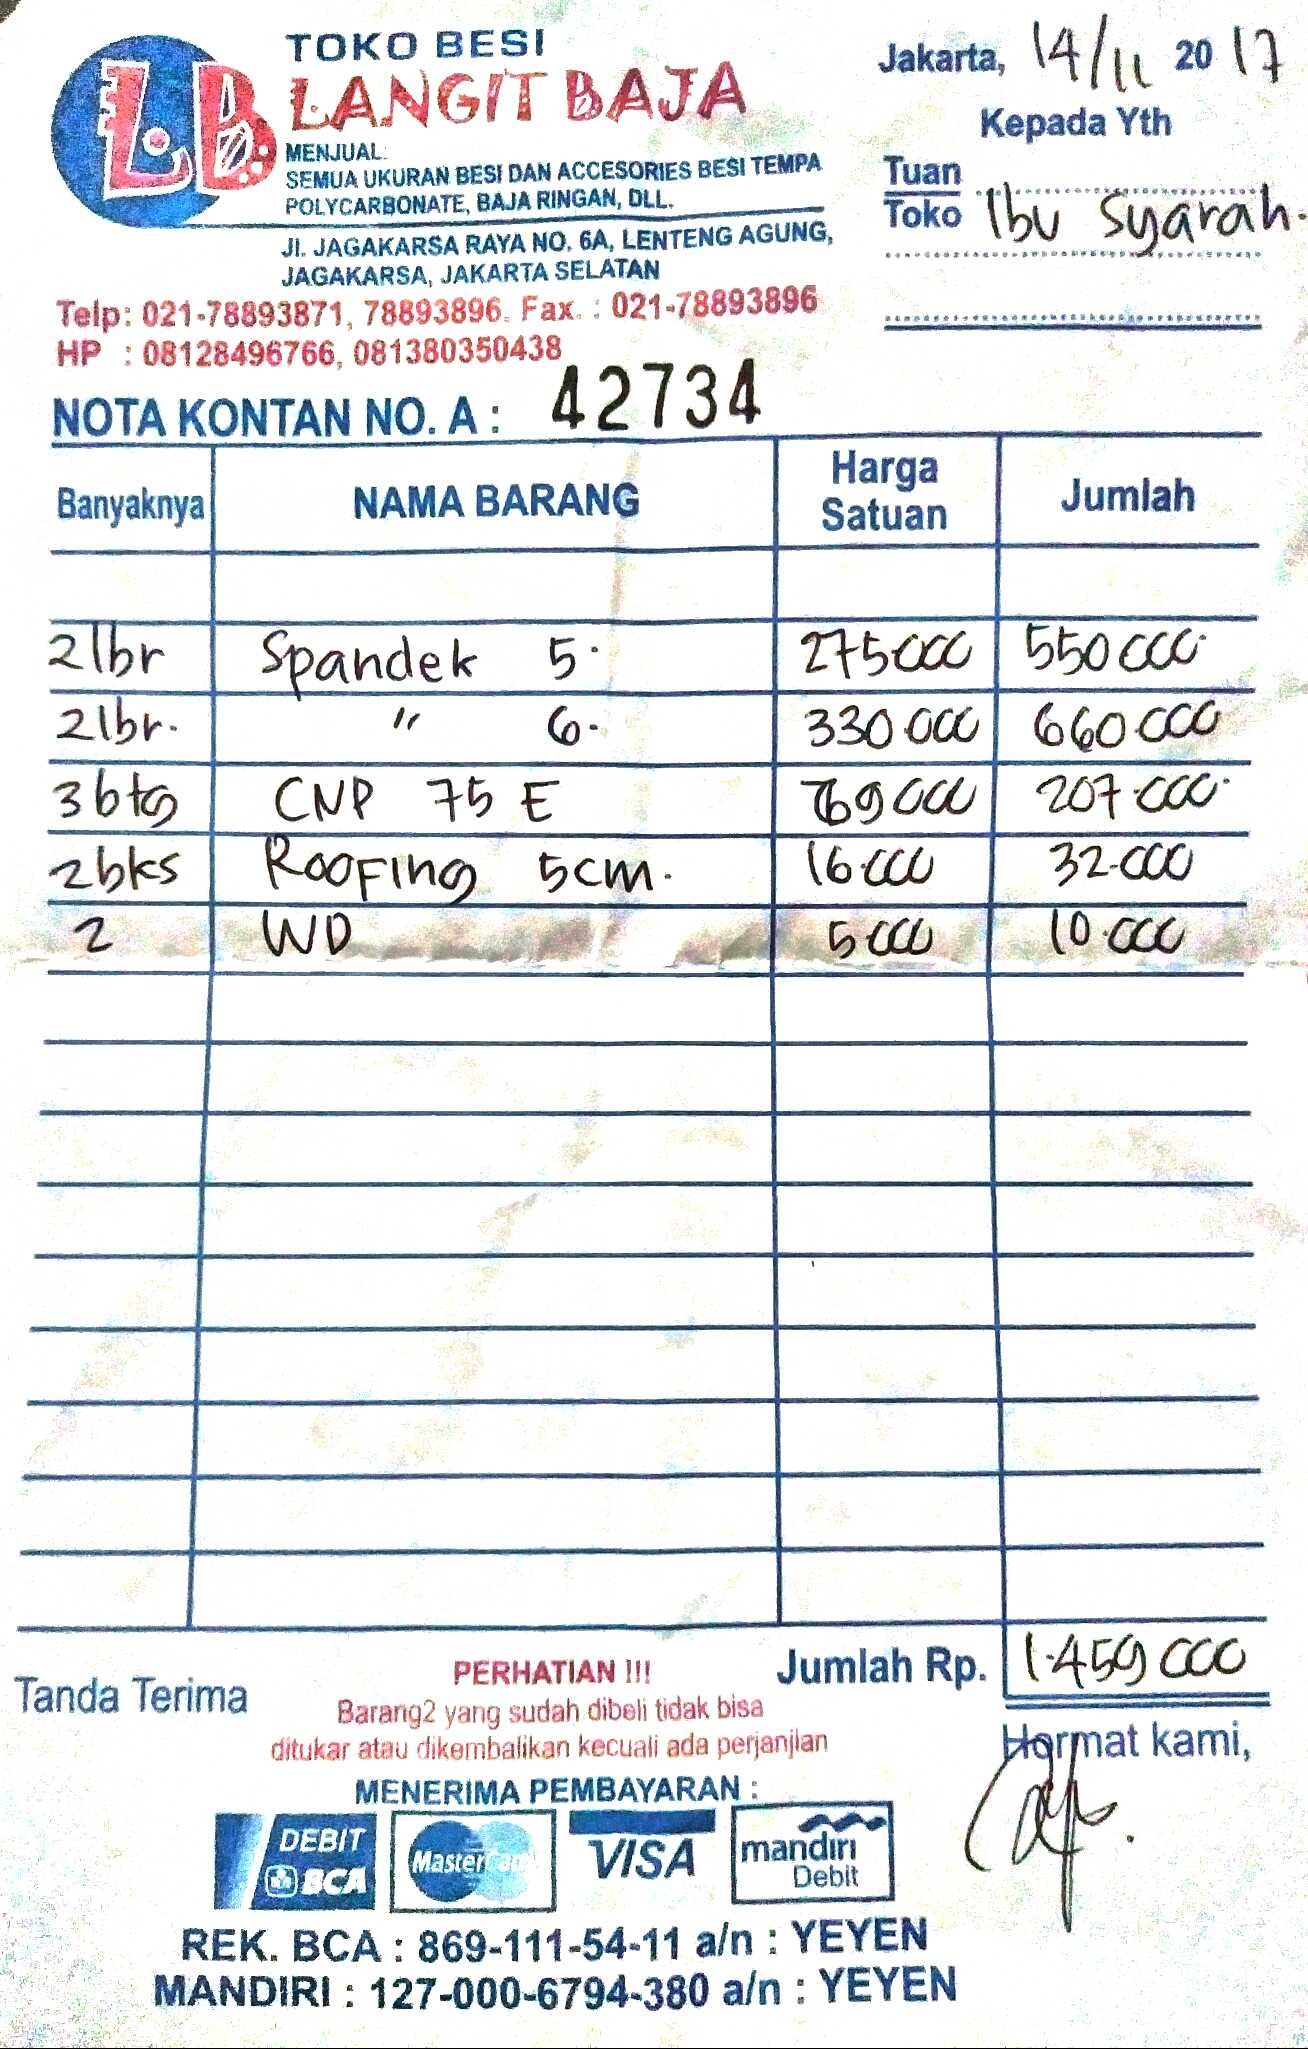 LB
TOKO BESI
LANGIT BAJA
MENJUAL:
SEMUA UKURAN BESI DAN ACCESORIES BESI TEMPA
POLYCARBONATE, BAJA RINGAN, DLL.
Jl. JAGAKARSA RAYA NO. 6A, LENTENG AGUNG,
JAGAKARSA, JAKARTA SELATAN
Telp: 021-78893871, 78893896. Fax. : 021-78893896
HP : 08128496766, 081380350438
Jakarta, 14/11 20 17
Kepada Yth
Tuan
Toko Ibu Syarah.
NOTA KONTAN NO. A : 42734
Banyaknya NAMA BARANG Harga Satuan Jumlah
2 lbr Spandek 5. 275000 550000.
2 lbr. " 6. 330.000 660.000
3 btg CNP 75 E 69000 207.000.
2 bks Roofing 5cm. 16.000 32.000
2 WD 5000 10.000
Jumlah Rp. 1.459000
Tanda Terima
PERHATIAN !!!
Barang2 yang sudah dibeli tidak bisa
ditukar atau dikembalikan kecuali ada perjanjian
Hormat kami,
MENERIMA PEMBAYARAN :
DEBIT BCA
MasterCard
VISA
mandiri Debit
REK. BCA : 869-111-54-11 a/n : YEYEN
MANDIRI : 127-000-6794-380 a/n : YEYEN